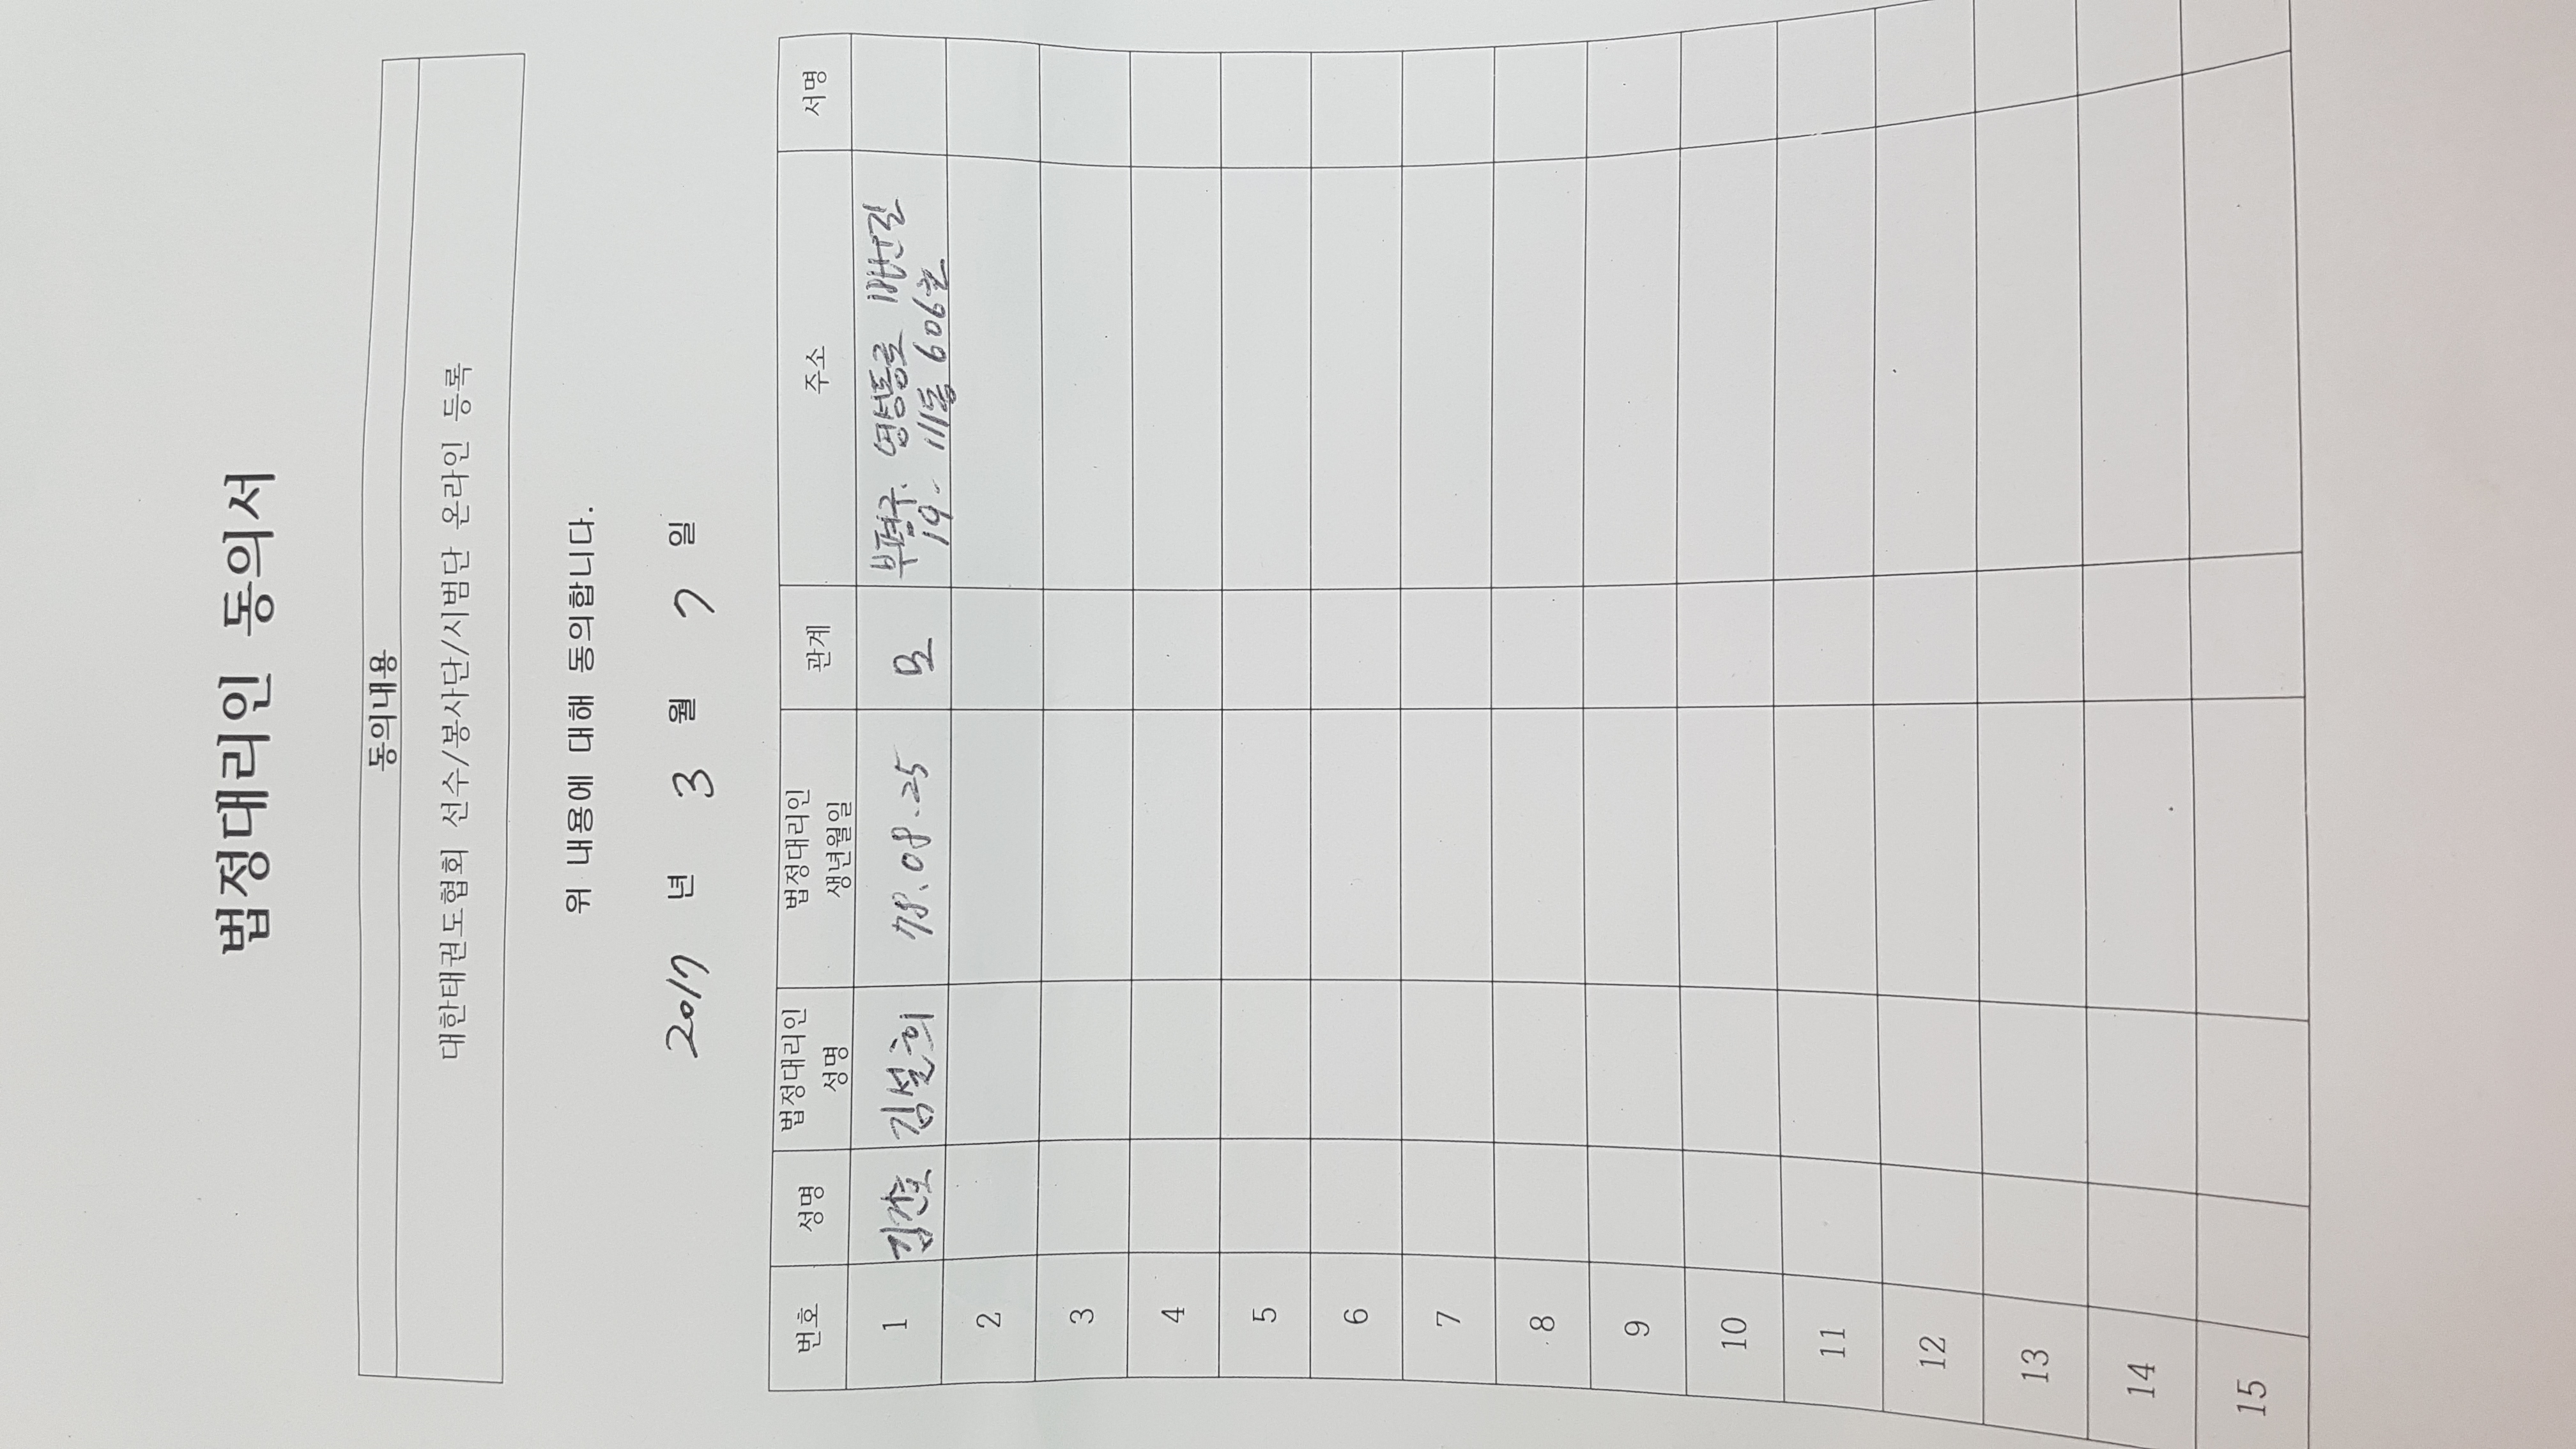 법정대리인 동의서
동의내용
대한태권도협회 선수/봉사단/시범단 온라인 등록
위 내용에 대해 동의합니다.
2017 년 3 월 7 일
번호 성명 법정대리인 성명 법정대리인 생년월일 관계 주소 서명
1 김건호 김설희 78.08.25 모 부평구. 영성동로 18번길
19. 111동 606호
2
3
4
5
6
7
8
9
10
11
12
13
14
15